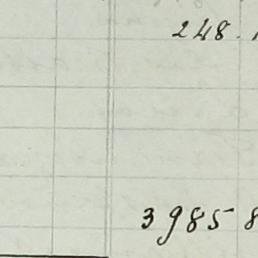 248.
3985 8